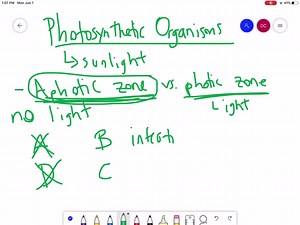 1:07 PM Mon Jun 7
Photosynthetic Organisms
↳ sunlight
- Aphotic zone vs. photic zone
no light
↳ light
A B intert
D C